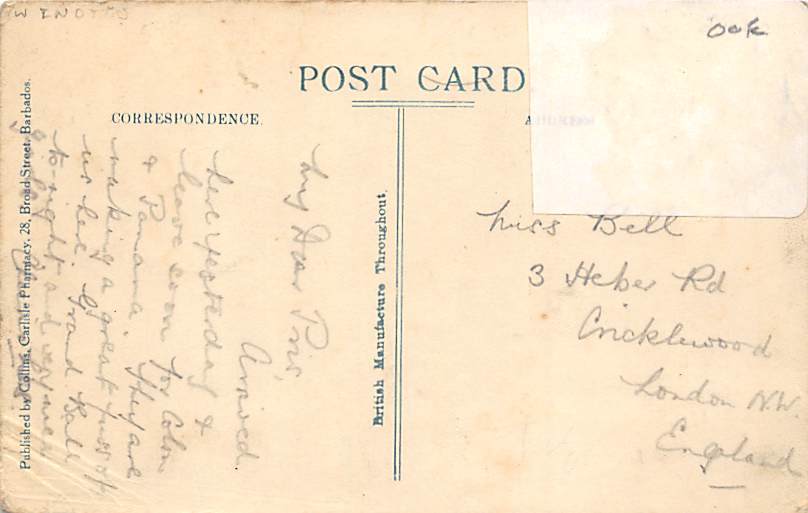 W INDIES
ook
POST CARD
CORRESPONDENCE.
My Dear Pris,
Arrived
here yesterday &
leave soon for Colon
& Panama. They are
making a great fuss of
us here. Grand Ball
to-night and
British Manufacture Throughout.
Published by Collins, Carlisle Pharmacy, 28, Broad Street, Barbados.
Miss Bell
3 Heber Rd
Cricklewood
London N.W.
England